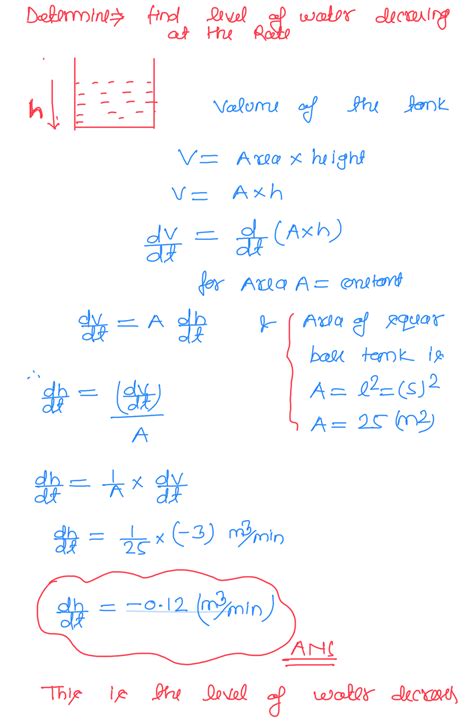 Determine⇒ find level of water decresing
at the Rate
h
Valume of the tank
V = Area × height
V = A×h
dv/dt = d/dt (A×h)
for Area A = constant
dv/dt = A dh/dt
& Area of squar
base tank is
A = l²=(5)²
A = 25 (m2)
∴ dh/dt = (dv/dt)/A
dh/dt = 1/A × dv/dt
dh/dt = 1/25 × (-3) m³/min
dh/dt = -0.12 (m³/min)
ANS
This is the level of water decreses